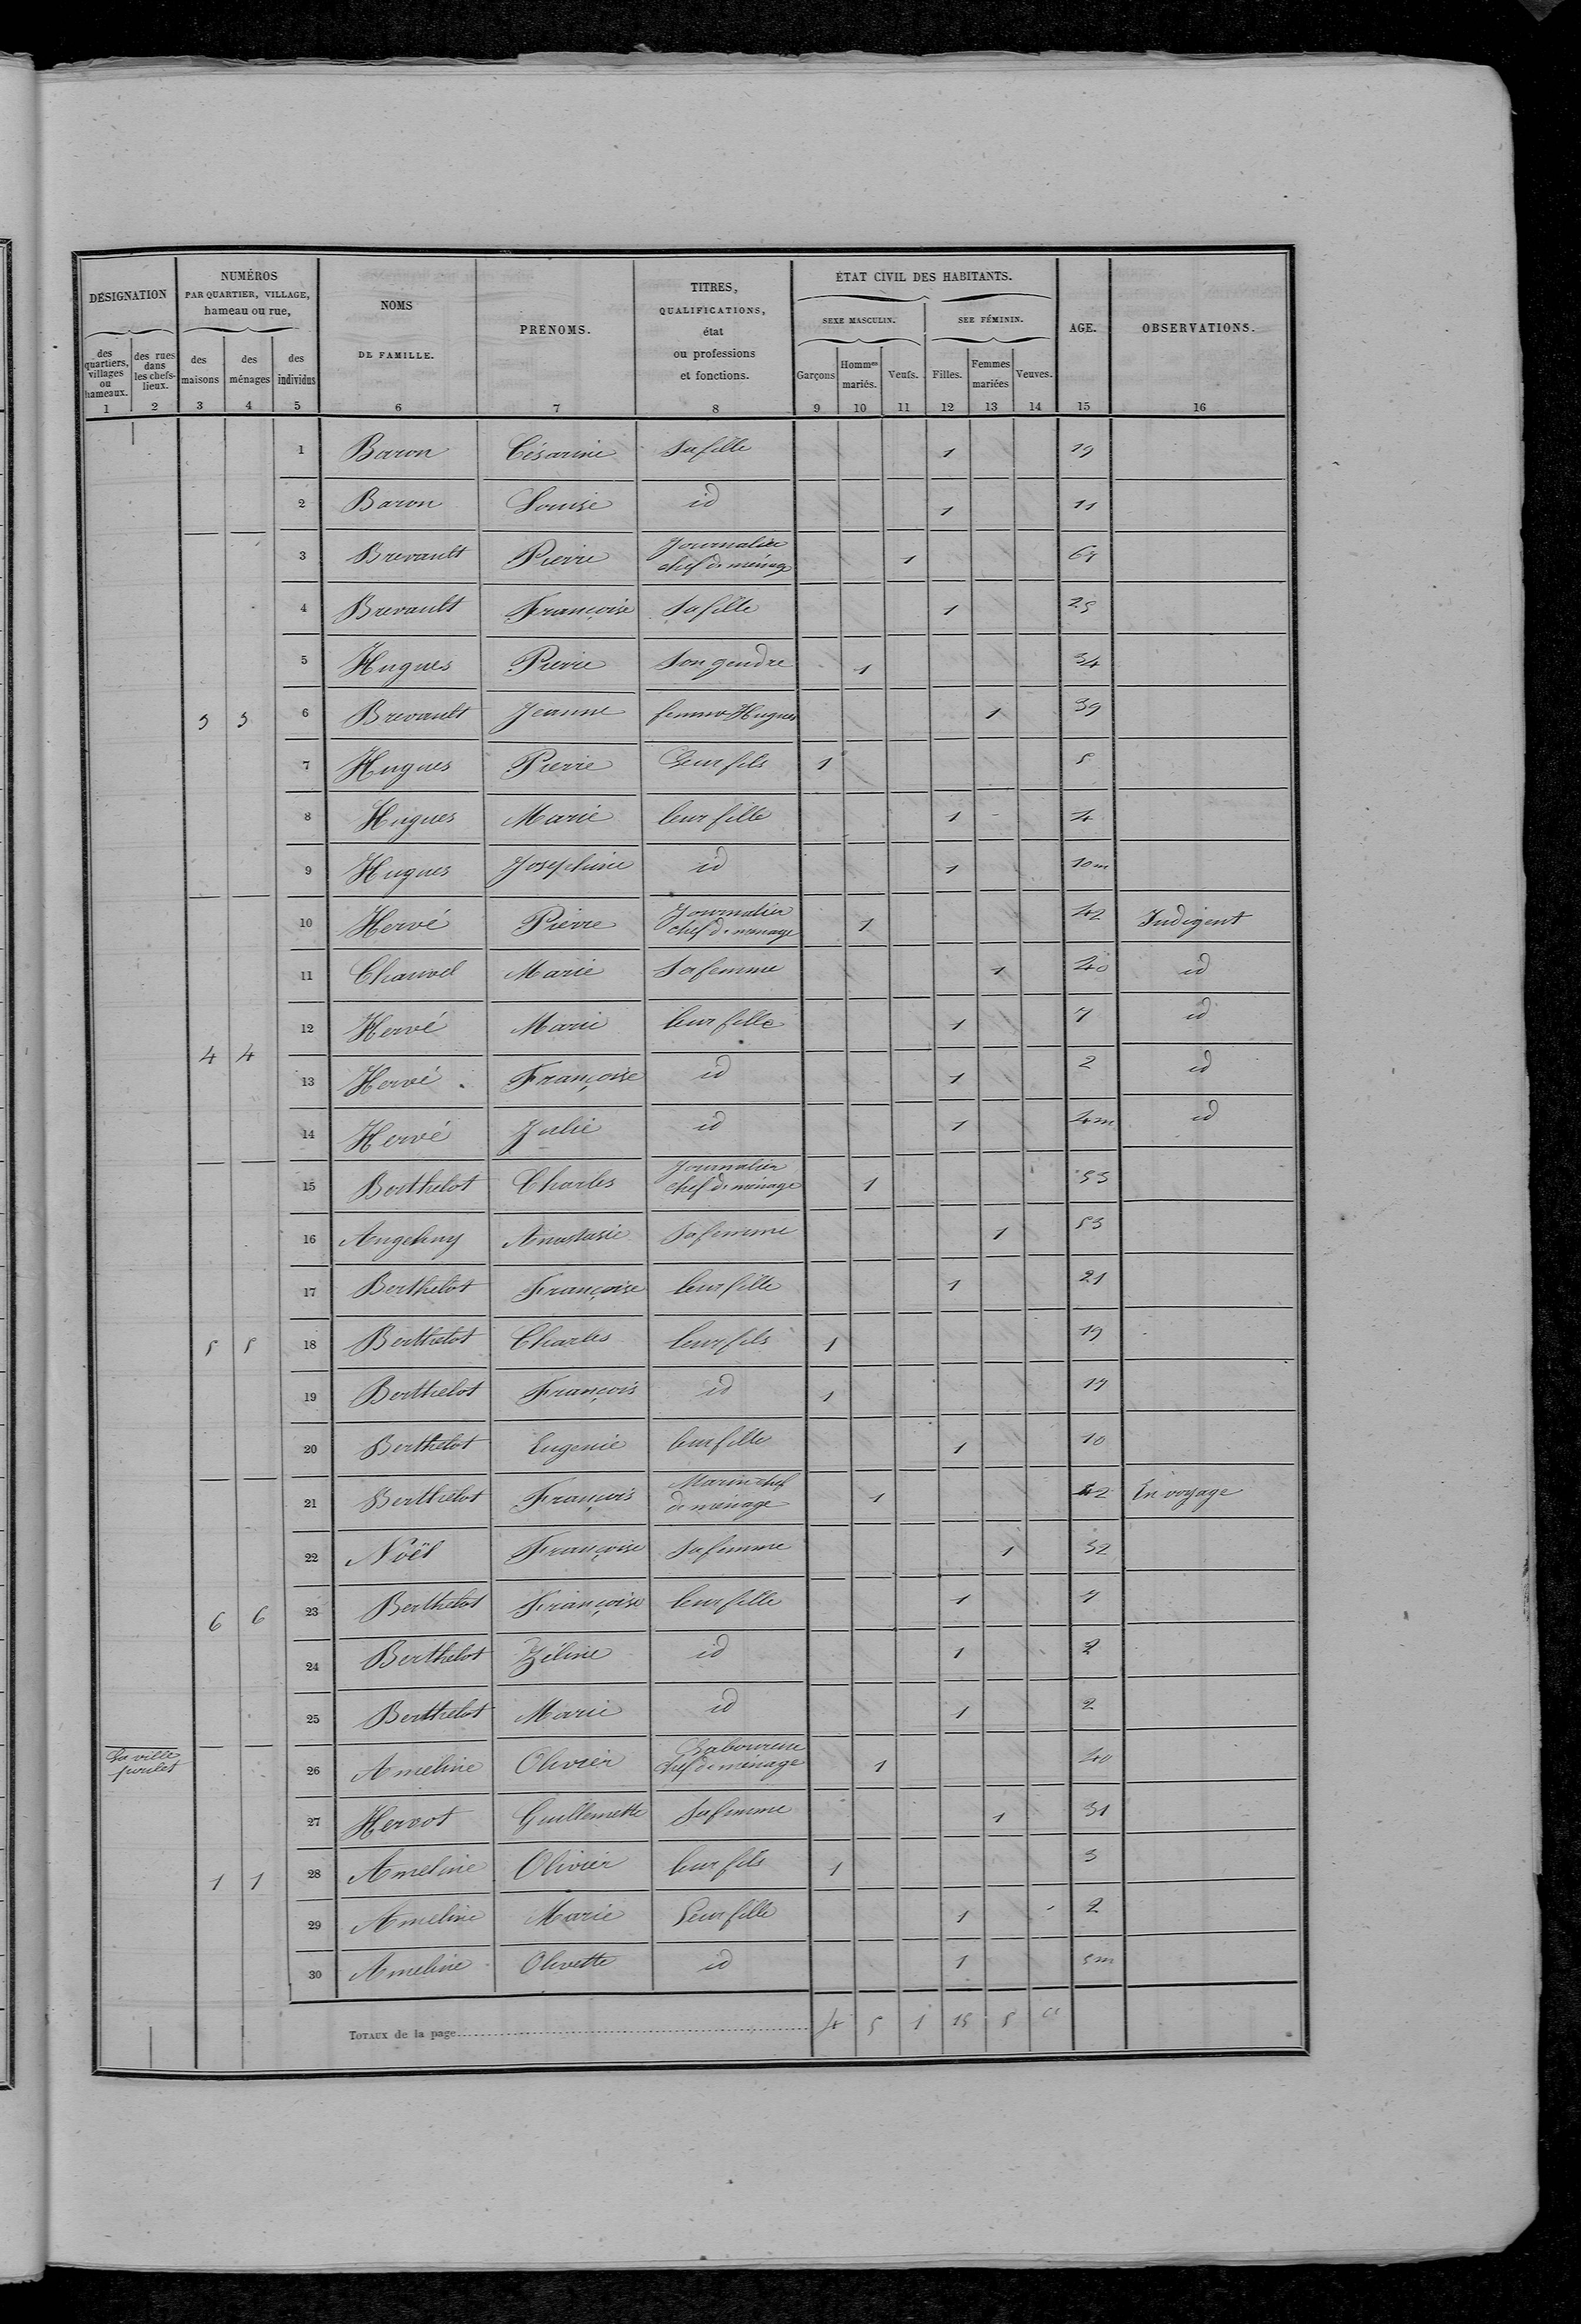 DÉSIGNATION NUMÉROS PAR QUARTIER, VILLAGE, hameau ou rue, NOMS DE FAMILLE. PRÉNOMS. TITRES, QUALIFICATIONS, état ou professions et fonctions. ÉTAT CIVIL DES HABITANTS. AGE. OBSERVATIONS.
SEXE MASCULIN. SEE FÉMININ.
des quartiers, villages ou hameaux. des rues dans les chefs-lieux. des maisons des ménages des individus Garçons Hommes mariés. Veufs. Filles. Femmes mariées Veuves.
1 2 3 4 5 6 7 8 9 10 11 12 13 14 15 16
1 Baron Césarine Sa fille 1 19
2 Baron Louise id 1 11
3 Brevault Pierre Journalier chef de ménage 1 67
4 Brevault Françoise Sa fille 1 25
5 Hugues Pierre Son gendre 1 34
3 3 6 Brevault Jeanne femme Hugues 1 39
7 Hugues Pierre Leur fils 1 5
8 Hugues Marie leur fille 1 4
9 Hugues Josephine id 1 10m
10 Hervé Pierre Journalier chef de ménage 1 42 Indigent
11 Chauvel Marie Sa femme 1 40 id
12 Hervé Marie leur fille 1 7 id
4 4
13 Hervé Françoise id 1 2 id
14 Hervé Julie id 1 4m id
15 Berthelot Charles Journalier chef de ménage 1 53
16 Anastasie Sa femme 1 53
17 Berthelot Françoise leur fille 1 21
5 5 18 Berthelot Charles leur fils 1 19
19 Berthelot François id 1 17
20 Berthelot Eugenie leur fille 1 10
21 Berthelot François Marin chef de ménage 1 42 En voyage
22 Noël Françoise Sa femme 1 32
6 6 23 Berthelot Françoise leur fille 1 7
24 Berthelot Zéline id 1 2
25 Berthelot Marie id 1 2
La ville poulet 26 Ameline Olivier Laboureur chef de ménage 1 40
27 Hervot Guillemette Sa femme 1 31
1 1 28 Ameline Olivier leur fils 1 3
29 Ameline Marie Leur fille 1 2
30 Ameline Olivette id 1 5m
TOTAUX de la page 4 5 1 15 5 0